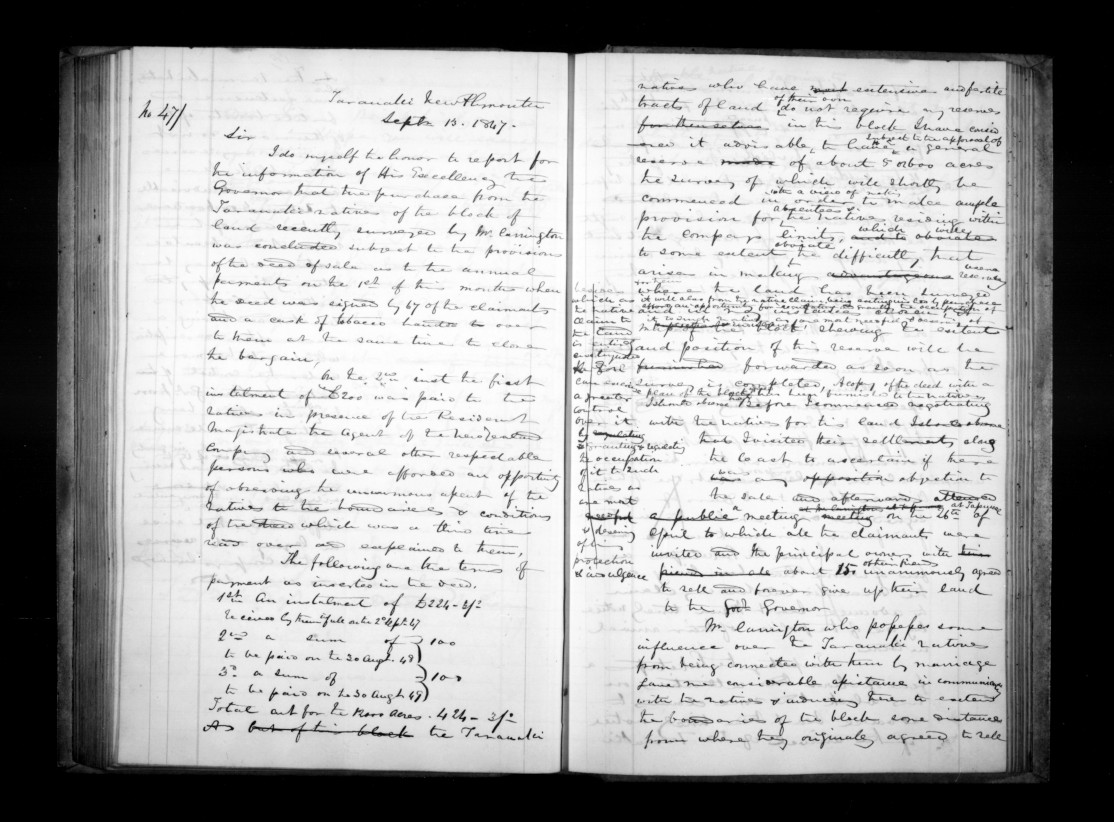 No 47/
Taranaki New Plymouth
Sept 13. 1847.
Sir
I do myself the honor to report for
the information of His Excellency the
Governor that the purchase from the
Taranaki natives of the block of
land recently surveyed by Mr Carrington
was concluded subject to the provisions
of the deed of sale as to the annual
payments on the 1st of this month when
the deed was signed by 67 of the claimants
and a cask of tobacco handed over
to them at the same time to close
the bargain,
On the 2nd inst the first
instalment of £200 was paid to the
natives in presence of the Resident
Magistrate the agent of the New Zealand
Company and several other respectable
persons who were afforded an opportunity
of observing the unanimous assent of the
natives to the boundaries & conditions
of the deed which was a this time
read over and explained to them,
The following are the terms of
payment as inserted in the deed.
1st An instalment of £224-3/-
Received by them in full on the 2d Sept. 47
2nd a sum of } 100
to be paid on the 30 Augt. 48
3d a sum of } 100
to be paid on the 30 Augt 49
Total amt for the acres. 424-3/-
As but of this block the Taranaki
natives who have most extensive and fertile
tracts of land of their own do not require any reserves
for themselves in this block I have
it advisable, to have subject to the approval of a general
reserve made of about acres
the survey of which will shortly be
commenced in order with a view of to make ample
provision for absentees & the natives residing within
the compass limits, which will
obviate to some extent the difficulty, that
arises in making reserves
where the land has been surveyed
it will also from the native claim being extinguished
map of the block showing the extent
and position of this reserve will be
furnished forwarded as soon as the
survey is completed, A copy of the deed with a
plan of the block has been furnished to the natives
Before I commenced negotiating
with the natives for this land
that I visited their settlements along
the coast to ascertain if there
was any opposition objection to
the sale and afterwards attended
at Tapuae
a public meeting meeting on the 26th of
April to which all the claimants were
invited and the principal owners with
others about 150 unanimously agreed
to sell and forever give up their land
to the Govt Governor
Mr Carrington who possesses some
influence over the Taranaki natives
from being connected with them by marriage
gave me considerable assistance in communicating
with the natives & inducing them to extend
the boundaries of the block some distance
from where they originally agreed to sell
which as
the native
claim to
the land
is entirely
extinguished
the Govt
can exercise
a greater
control
over it
by regulating
granting & updating
the occupation
of it to such
natives as
are most
deserving
of his
protection
& indulgence